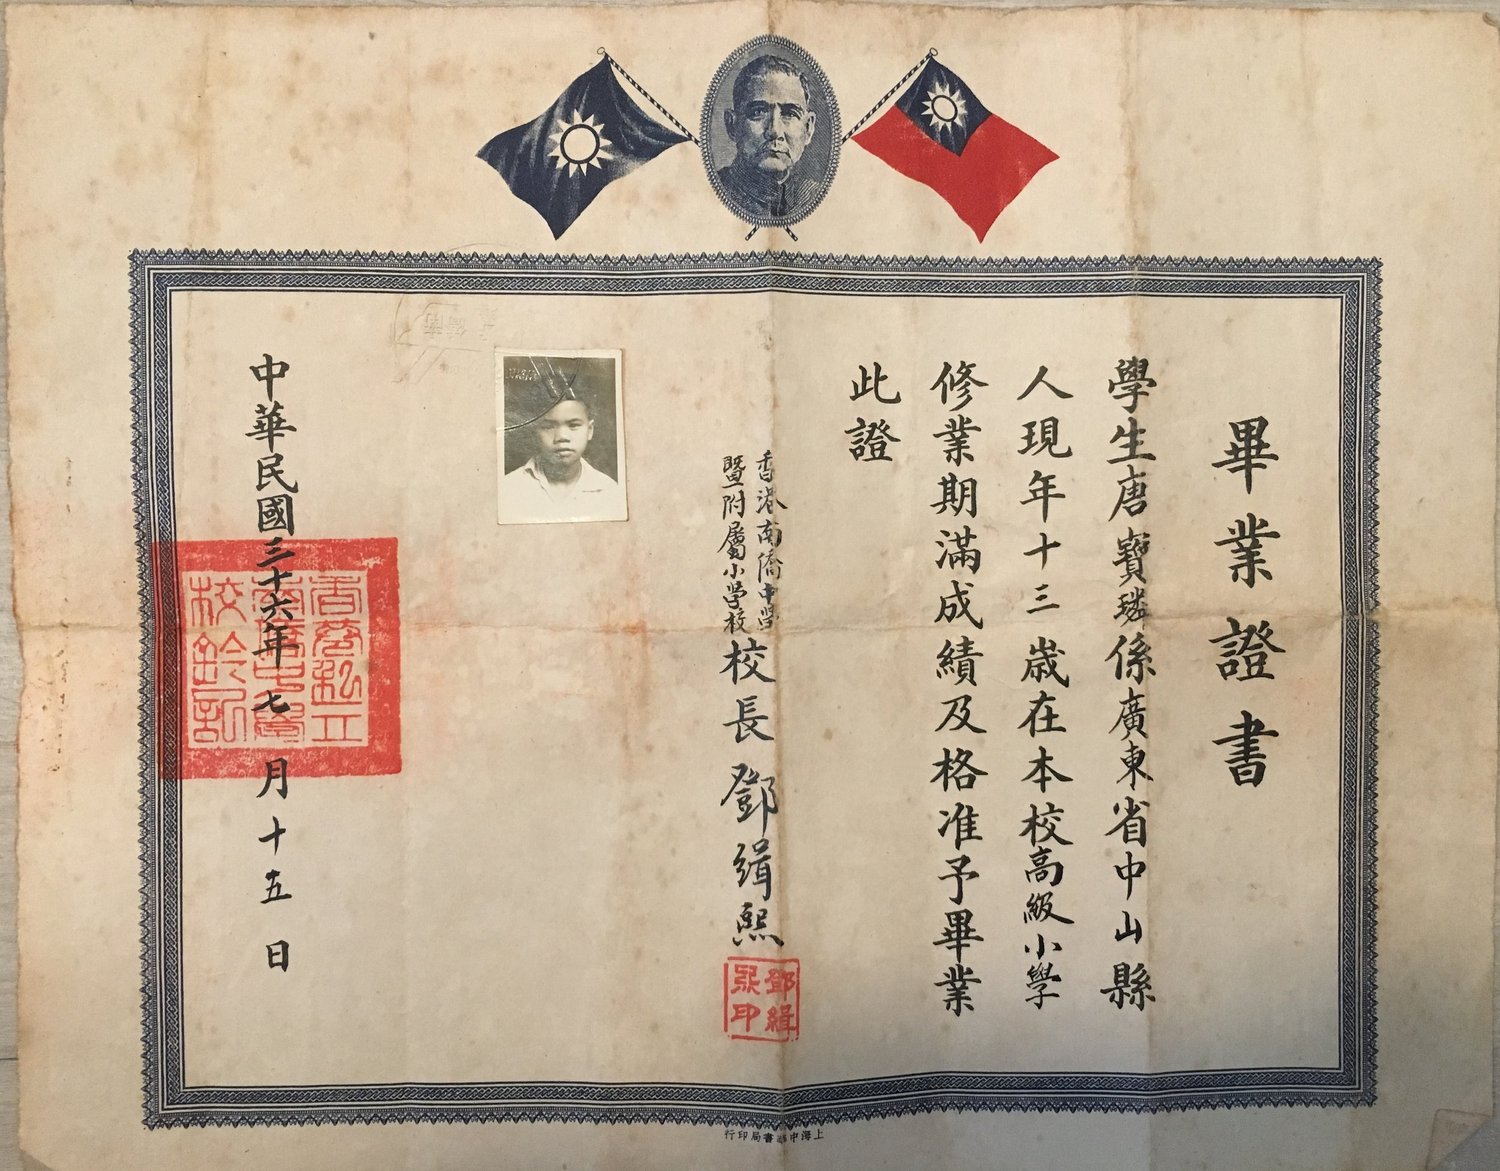 畢業證書
學生唐寶璘係廣東省中山縣
人現年十三歲在本校高級小學
修業期滿成績及格准予畢業
此證
香港南僑中學
暨附屬小學校
校長鄧緝熙
鄧緝熙印
中華民國三十六年七月十五日
香港私立南僑中學校鈐記
上海中華書局印行